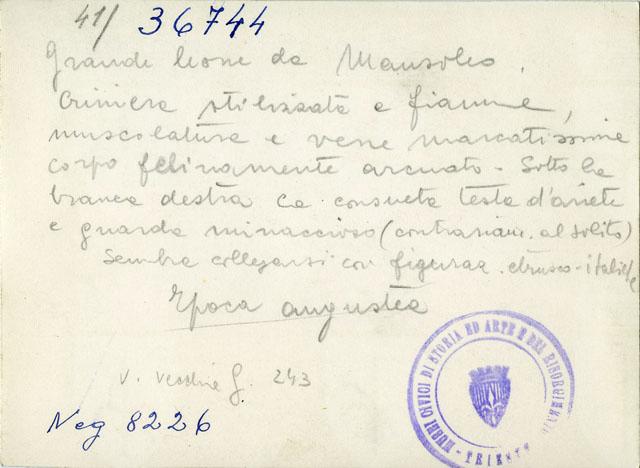 41/ 36744
Grande leone da Mausoleo.
Criniera stilizzata e fiamme,
muscolatura e vene marcatissime
corpo felinamente arcuato - Sotto la
branca destra la consueta testa d'ariete
e guarda minaccioso (contrariam. al solito)
Sembra collegarsi con figuraz. etrusco-italiche
Epoca augustea
v. vecchie g. 243
Neg 8226
MUSEI CIVICI DI STORIA ED ARTE E DEL RISORGIMENTO
- TRIESTE